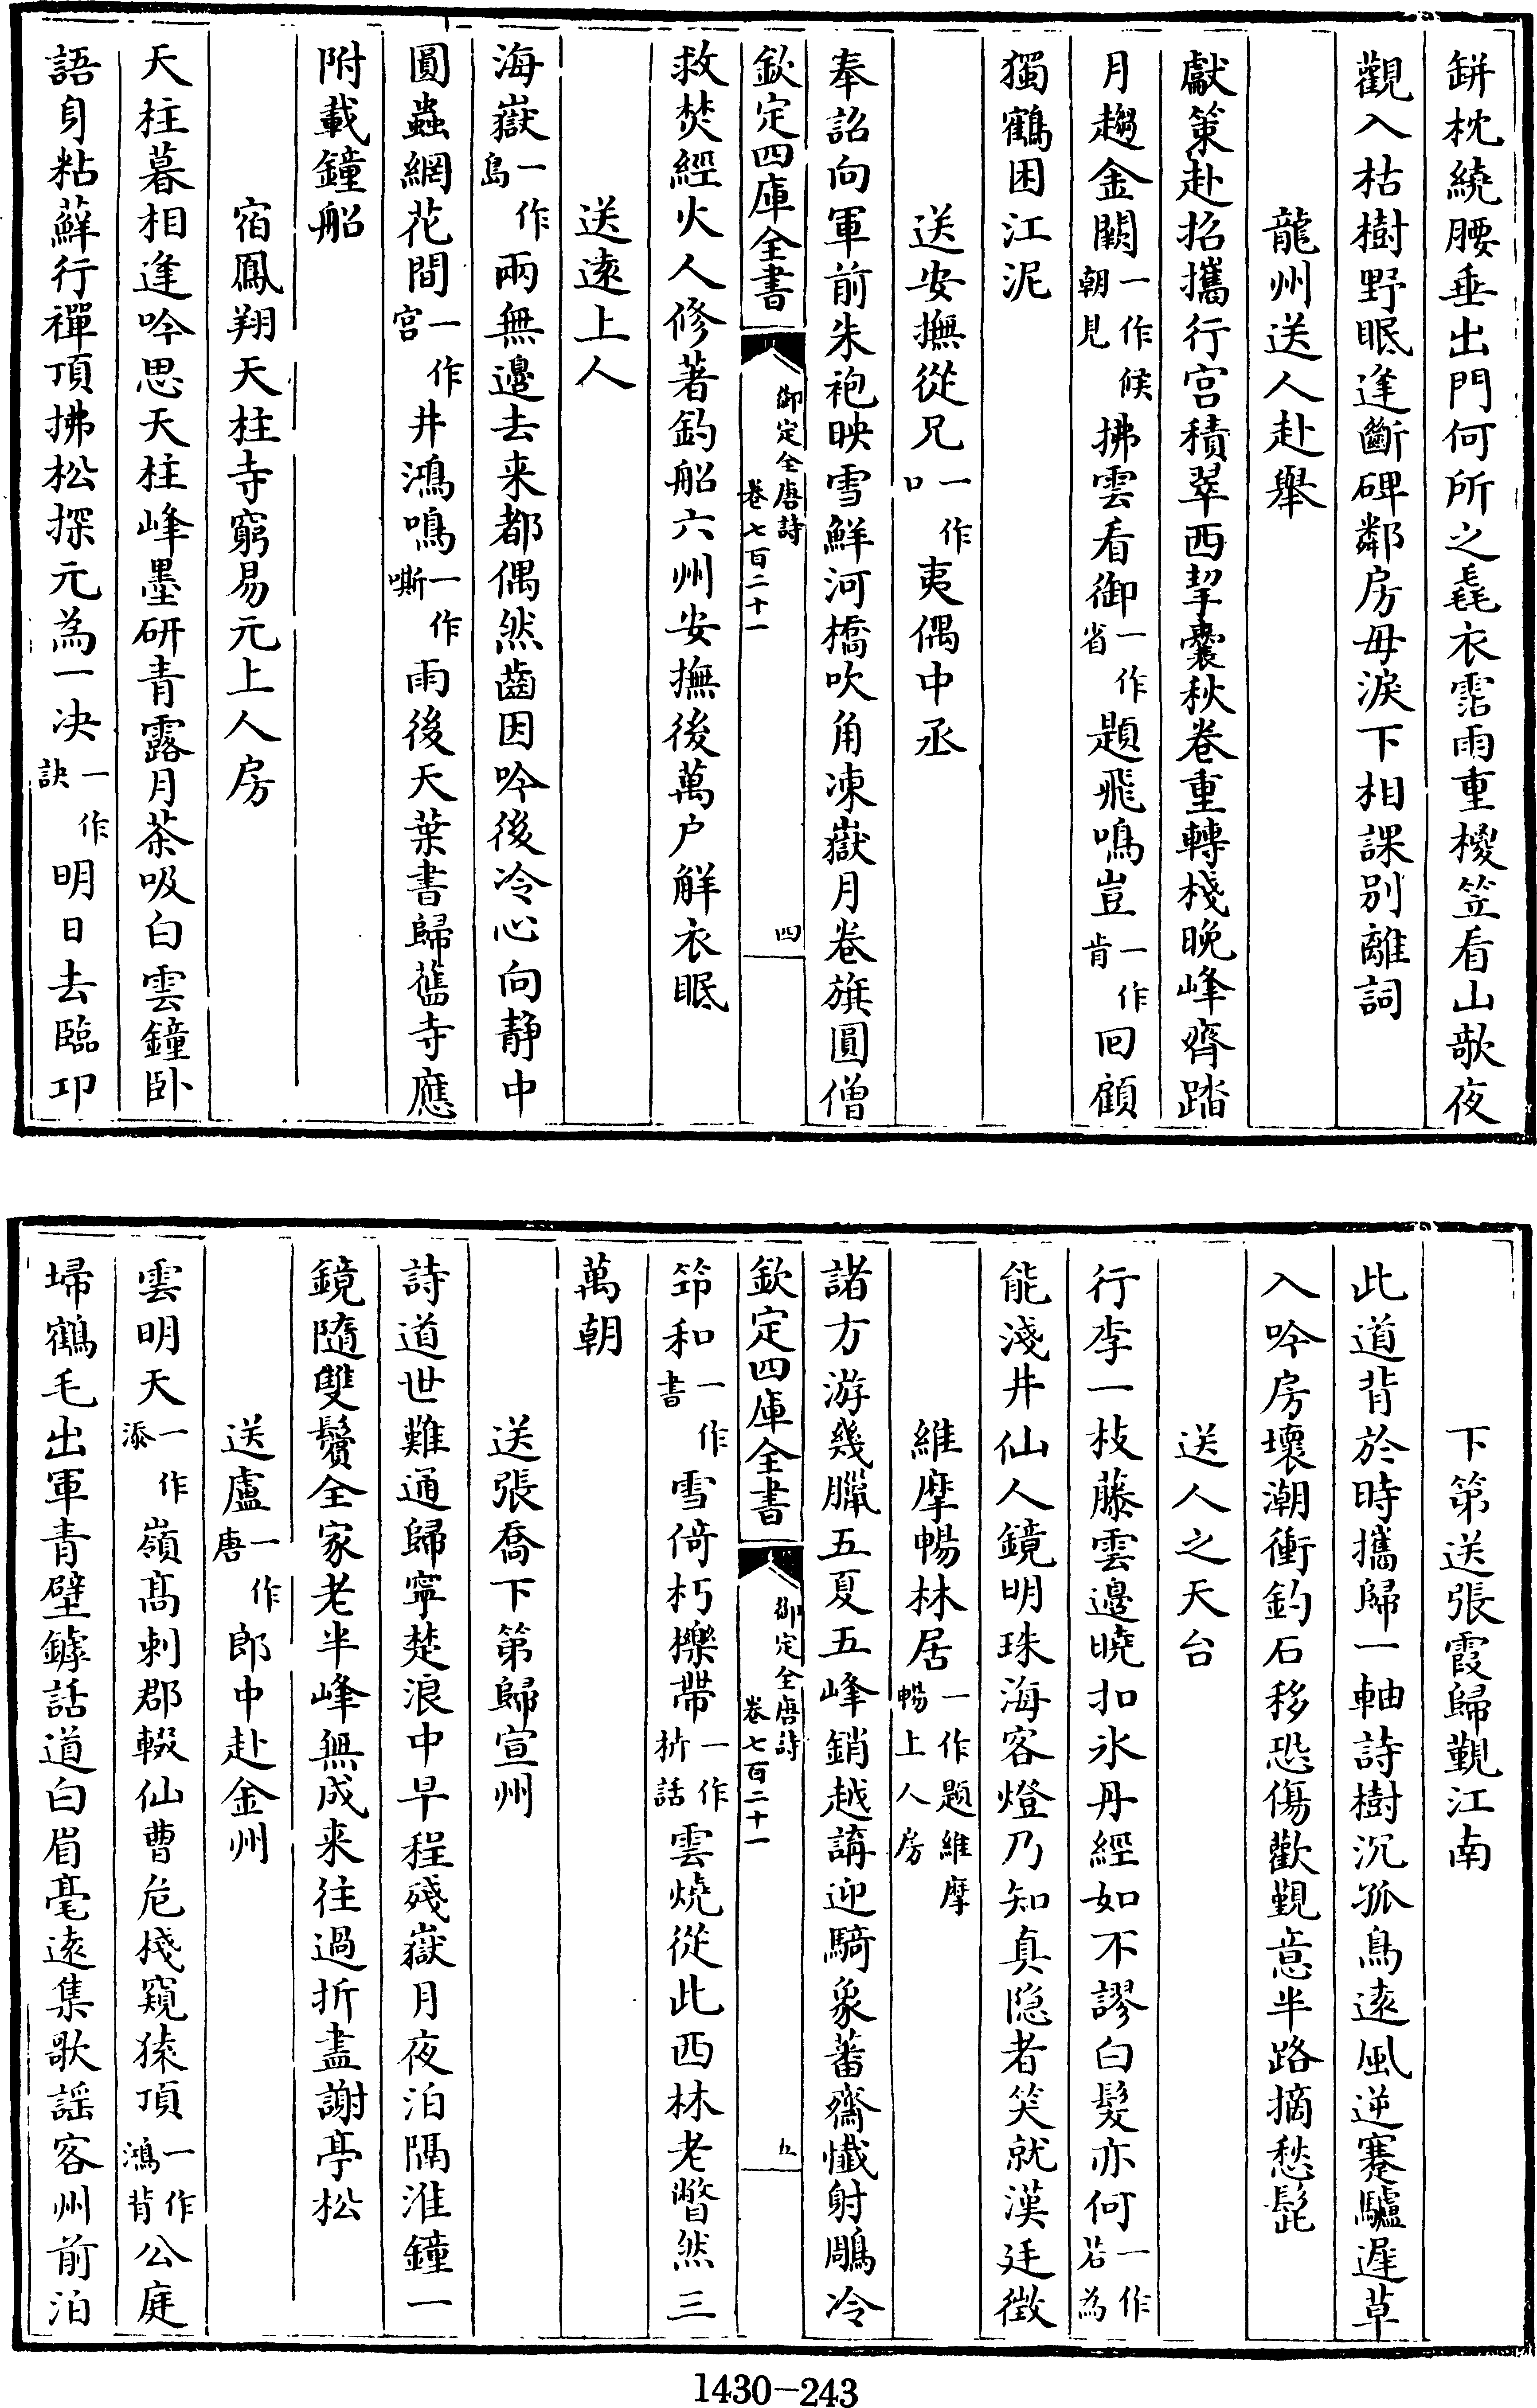 缾枕繞腰垂出門何所之毳衣霑雨重椶笠看山欹夜
觀入枯樹野眠逢斷碑鄰房毋淚下相課別離詞
龍州送人赴舉
獻策赴招攜行宫積翠西挈囊秋卷重轉棧晚峰齊踏
月趨金闕一作朝見候拂雲看御一作省題飛鳴豈一作肯回顧
獨鶴困江泥
送安撫從兄一作口夷偶中丞
奉詔向軍前朱袍映雪鮮河橋吹角凍嶽月卷旗圓僧
欽定四庫全書 御定全唐詩卷七百二十一 四
救焚經火人修著釣船六州安撫後萬户解衣眠
送遠上人
海嶽一作島兩無邊去来都偶然齒因吟後冷心向静中
圓蟲網花間一作宫井鴻鳴一作嘶雨後天葉書歸舊寺應
附載鐘船
宿鳳翔天柱寺窮易元上人房
天柱暮相逢吟思天柱峰墨研青露月茶吸白雲鐘卧
語身粘蘚行禪頂拂松探元為一决一作訣明日去臨邛
下第送張霞歸覲江南
此道背於時攜歸一軸詩樹沉孤鳥遠風逆蹇驢遲草
入吟房壞潮衝釣石移恐傷歡覲意半路摘愁髭
送人之天台
行李一枝藤雲邊曉扣氷丹經如不謬白髮亦何一作若為
能淺井仙人鏡明珠海客燈乃知真隱者笑就漢廷徵
維摩暢林居一作題維摩暢上人房
諸方游幾臘五夏五峰銷越講迎騎象蕃齋懺射鵰冷
欽定四庫全書 御定全唐詩卷七百二十一 五
筇和一作書雪倚朽櫟帶一作枿話雲燒從此西林老瞥然三
萬朝
送張喬下第歸宣州
詩道世難通歸寧楚浪中早程殘嶽月夜泊隔淮鐘一
鏡隨雙鬢全家老半峰無成来往過折盡謝亭松
送盧一作唐郎中赴金州
雲明天一作添嶺髙刺郡輟仙曹危棧窺猿頂一作鴻背公庭
埽鶴毛出軍青壁罅話道白眉毫遠集歌謡客州前泊
1430-243